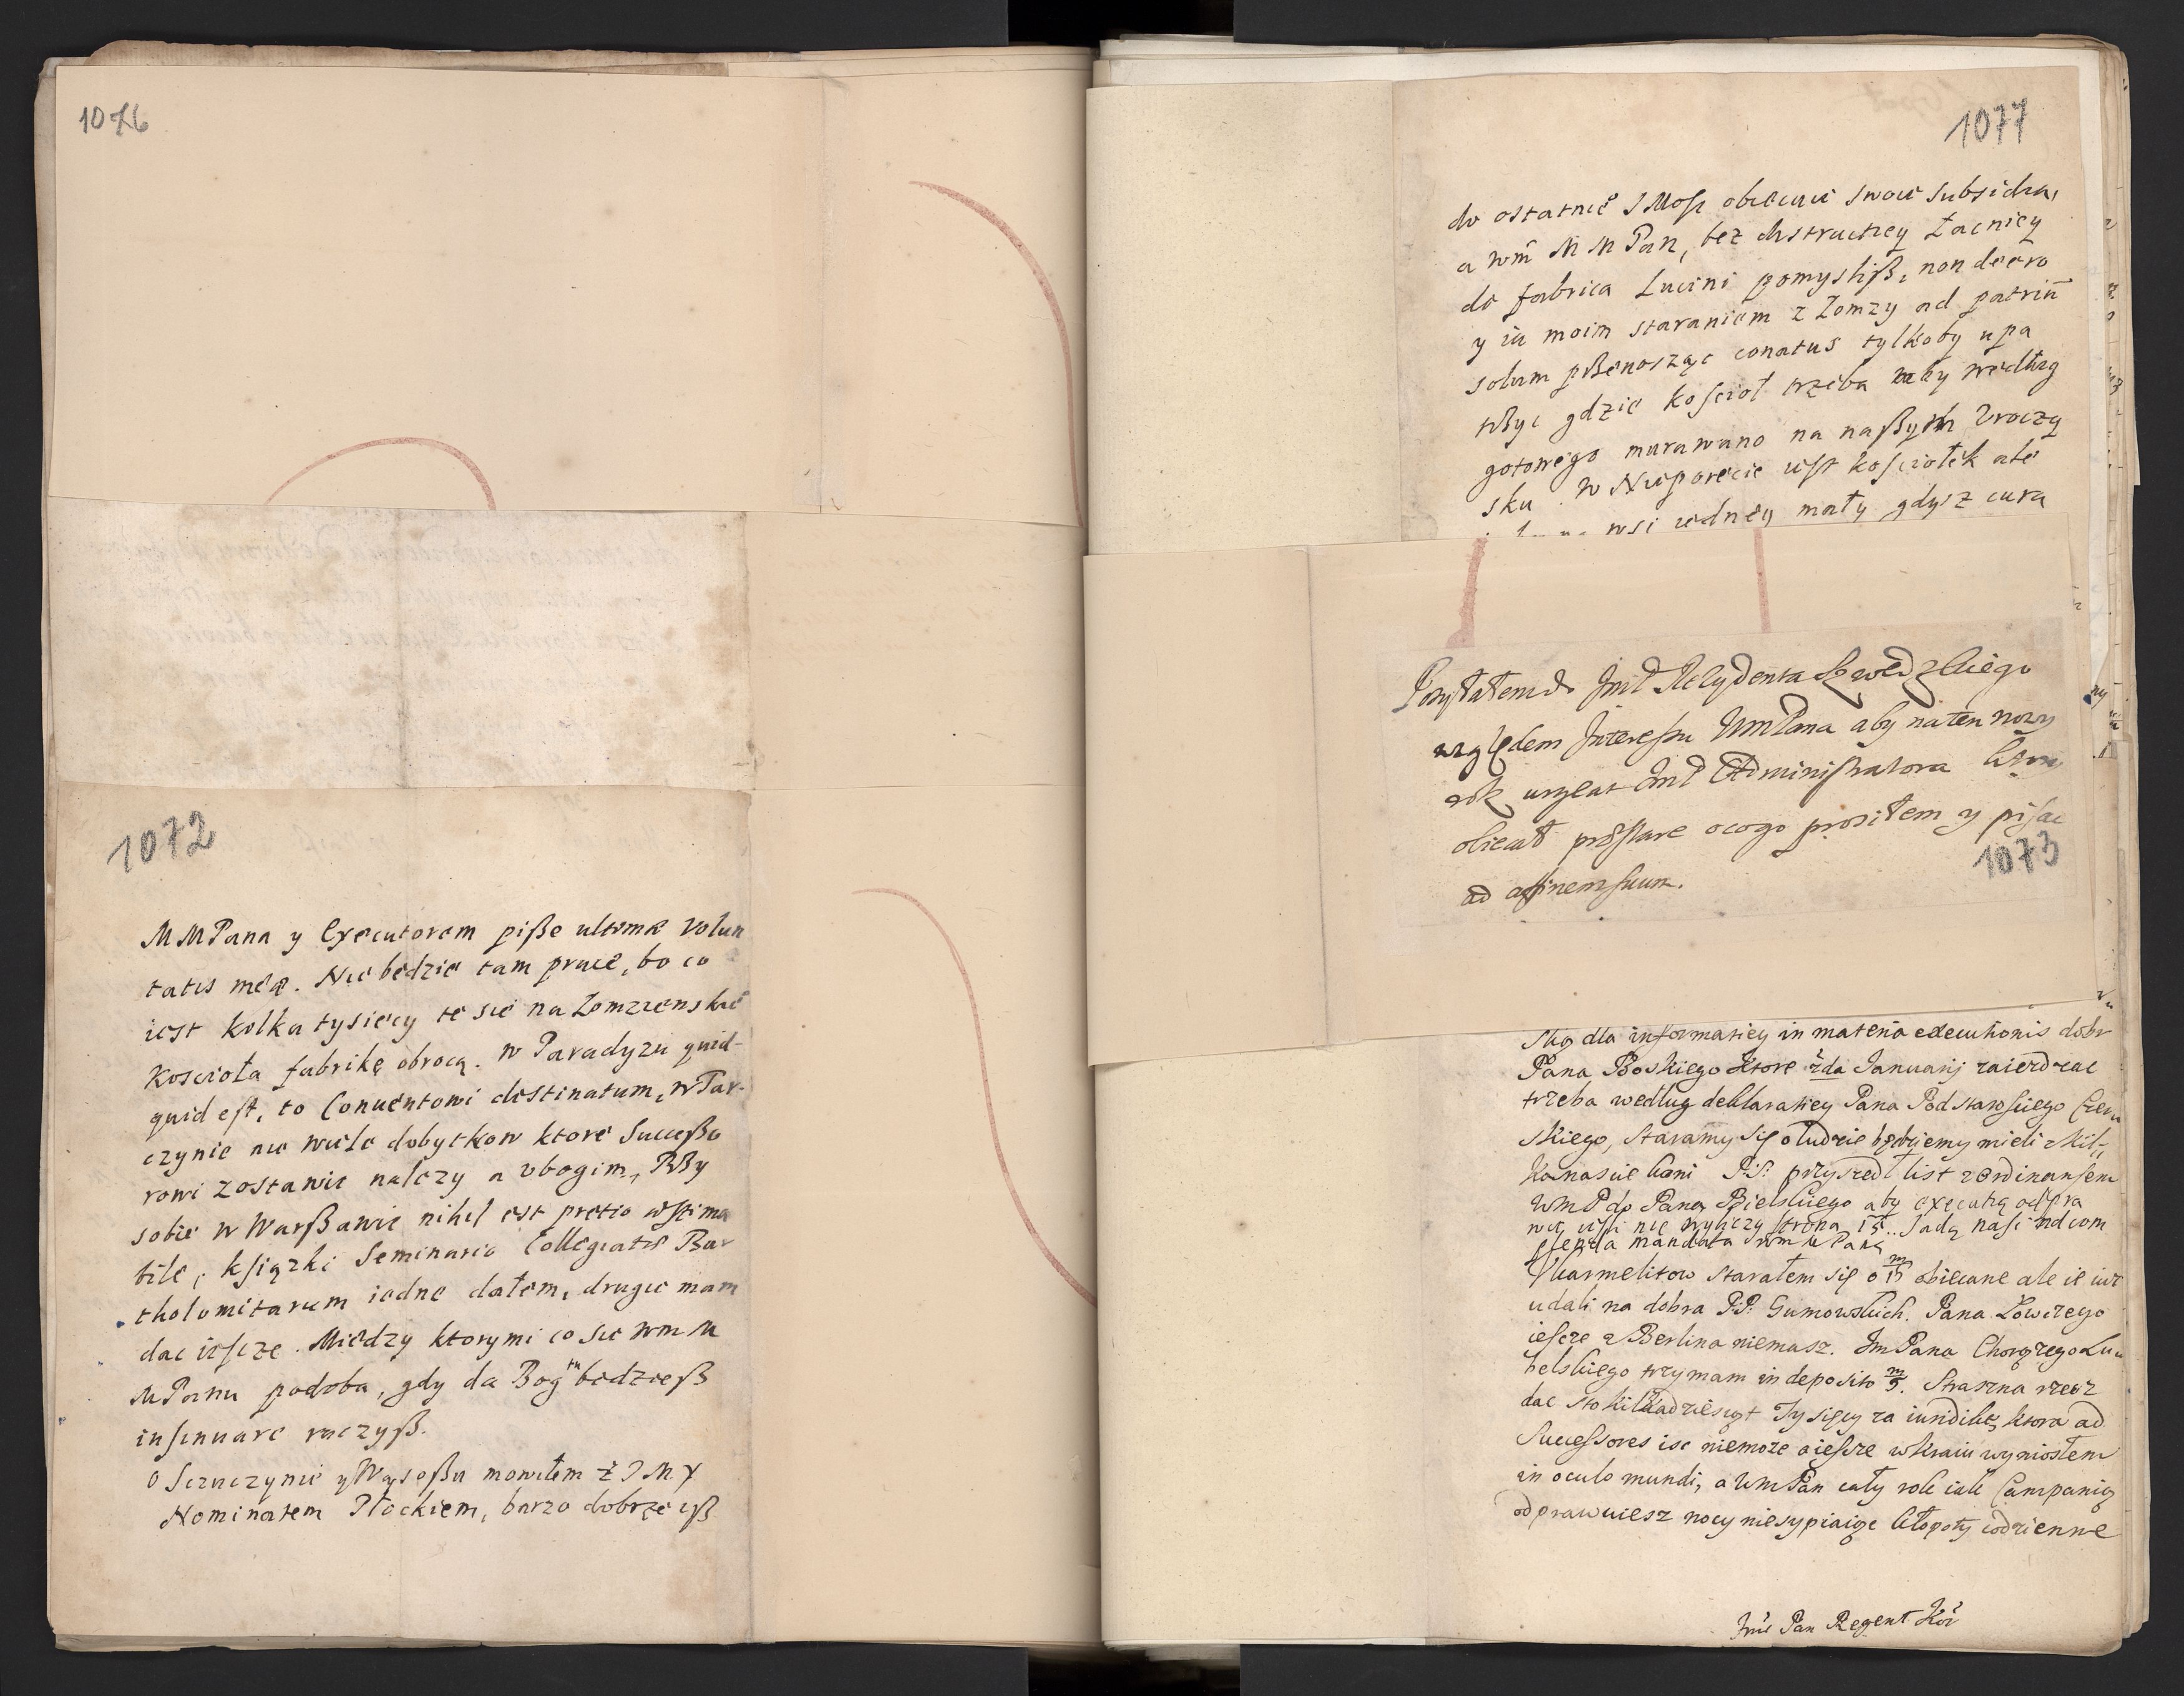 1076
1072
MMPana y Executorem piße ultimæ Volun
tatis meæ. Nie będzie tam prace, bo co
iest kolka tysięcy te sie na Lomzienskie
Koscioła fabrikę obrocą. w Paradyzu quid-
quid est, to Conuentowi destinatum, w Tar-
czynie nie wiele dobytkow ktore Succeßo
rowi zostawic nalezy a vbogim, PBy
sobie w Warßawie nihil est pretio æstima
bile, ksiązki Seminario Collegiatæ Bar
tholomitarum iedne dałem, drugie mam
dac iescze. Miedzy ktorymi co sie Wm M
MPanu podoba, gdy da Bog tu bedzieß
insinuare raczyß.
O Sczuczynie y Wąsoßu mowiłem z J M X
Nominatem Płockiem, barzo dobrze iß
1077
do ostatnie J Mosc obiecuie swoie subsidia,
a wm M M Pan, bez distractiey Łacniey
do fabrica Lucini pomysliß, non deero
y ia moim staraniem z Lomzy ad patriu
solum pßenosząc conatus tylkoby upa
tßyc gdzie Kosciol trzeba aby według
gotowego murawano na naßym Vroczy
sku. W Nieporecie iest kosciołek ale
wsi iedney mały gdysz cura
Pozytałem do Jmć Rezydenta Szwedzkiego
względem Interessu WmPana aby na ten nowy
rok urzeat Jmć Administratora
obiecał præstare o co go prosiłem y pisac
ad affinem suum.
1073
Sług dla informatiey in materia executionis dobr
Pana Boskiego ktore 2da Januarij zaierdzac
trzeba według deklaratiey Pana Podstarosciego Czern
skiego, staramy się o ludzie będziemy mieli z kil
kanascie koni P.S. przyszedł list z ordinansem
WmP do Pana Bielskiego aby executią odpra
wic, iesli nie wyliczy strona 15. Jadą nasi ad com
plenda mandata Wm M Pana
V karmelitow starałem się o m/15 obiecane ale ie iuz
udali na dobra P.P. Gumowskich. Pana Łowczego
iescze z Berlina niemasz. Jm Pana Chorązego Lu
belskiego trzymam in deposito m/9. Straszna rzecz
dac sto kilkadziesiąt Tysięcy za iuridikę, ktora ad
Successores isc niemoze a iescze w kraiu wyniosłem
in oculo mundi, a Wm Pan cały rok iak Campanią
odprawuiesz nocy niesypiaiąc kłopoty codzienne
Jmć Pan Regent Kor